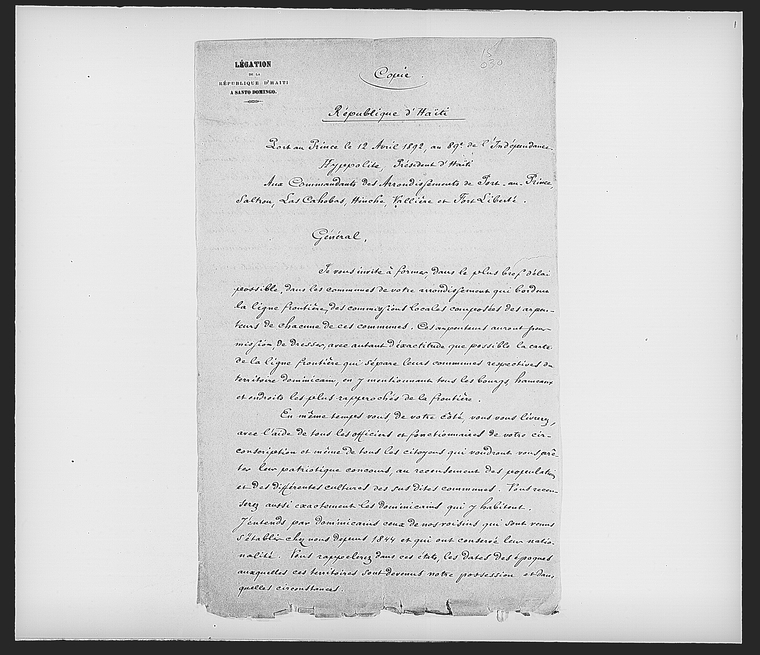 LÉGATION
DE LA
RÉPUBLIQUE D'HAITI
A SANTO DOMINGO.
Copie
République d'Haïti
Port au Prince le 12 Avril 1892, au 89e de l'Indépendance
Hyppolite, Président d'Haïti
Aux Commandants des Arrondissements de Port-au-Prince
Saltrou, Las Cahobas, Hinche, Vallière et Fort Liberté.
Général,
Je vous invite à former dans le plus bref délai
possible, dans les communes de votre arrondissement qui bordent
la ligne frontière, des commissions locales composées des arpen-
teurs de chacune de ces communes. Ces arpenteurs auront pour
mission de dresser, avec autant d'exactitude que possible la carte
de la ligne frontière qui sépare leurs communes respectives du
territoire dominicain, en y mentionnant tous les bourgs, hameaux
et endroits les plus rapprochés de la frontière.
En même temps vous, de votre côté, vous vous livrerez,
avec l'aide de tous les officiers et fonctionnaires de votre cir-
conscription et même de tous les citoyens qui voudront vous prê-
ter leur patriotique concours, au recensement des populations
et des différentes cultures des sus dites communes. Vous recen-
serez aussi exactement les dominicains qui y habitent.
J'entends par dominicains ceux de nos voisins qui sont venus
s'établir chez nous depuis 1844 et qui ont conservé leur natio-
nalité. Vous rappelerez dans ces états, les dates des époques
auxquelles ces territoires sont devenus notre possession et dans
quelles circonstances.